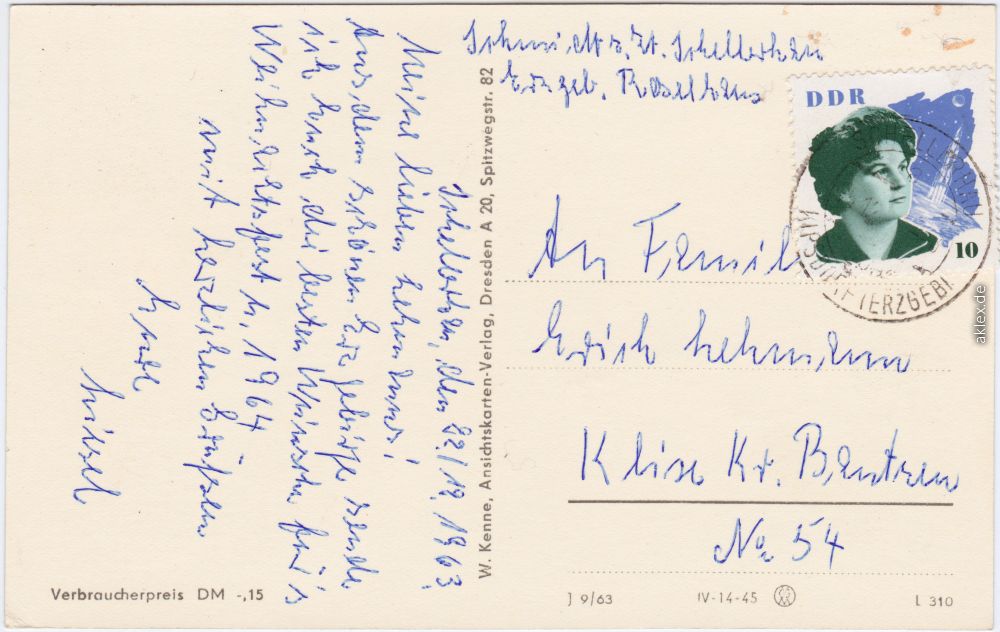 Schmidt z. Zt. Schellerhau
Erzgeb. Raselhaus
DDR
10
KIPSDORF (ERZGEB)
Schellerhau, den 22/12. 1963
Meine lieben Lehmanns!
Aus dem schönen Erzgebirge sende
ich Euch die besten Wünsche für's
Weihnachtsfest u. 1964
mit herzlichen Grüßen
Eure
Liesel
An Famil
Erich Lehmann
Klix Kr. Bautzen
No 54
W. Kenne, Ansichtskarten-Verlag, Dresden A 20, Spitzwegstr. 82
Verbraucherpreis DM -,15
J 9/63
IV-14-45
L 310
aklex.de